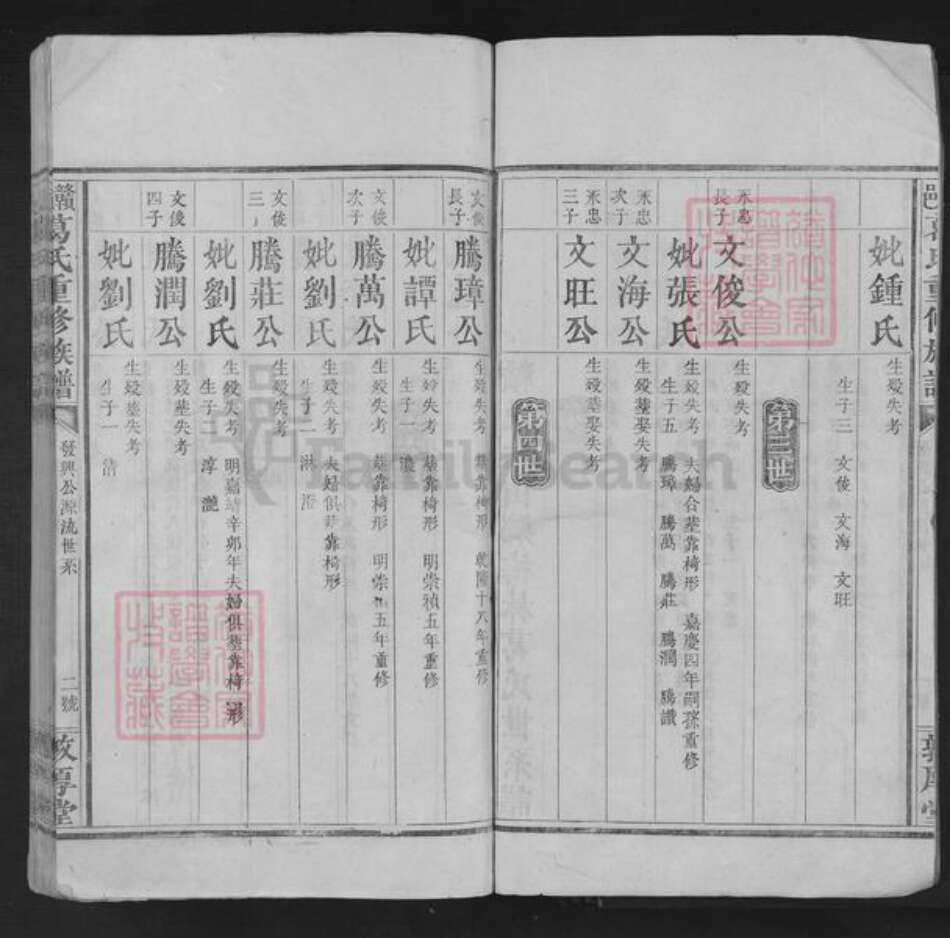 妣鍾氏
生歿失考
生子三 文俊 文海 文旺
第三世
永忠長子
文俊公
生歿失考
妣張氏
生歿失考 夫婦合塟靠椅形 嘉慶四年嗣孫重修
生子五 騰璋 騰萬 騰莊 騰潤 騰讚
永忠次子
文海公
生歿塟娶失考
永忠三子
文旺公
生歿塟娶失考
第四世
文俊長子
騰璋公
生歿失考 塟靠椅形 乾隆十八年重修
妣譚氏
生歿失考 塟靠椅形 明崇禎五年重修
生子一 濃
文俊次子
騰萬公
生歿失考 塟靠椅形 明崇禎五年重修
妣劉氏
生歿失考 夫婦俱塟靠椅形
生子二 淋 澄
文俊三
騰莊公
生歿失考
妣劉氏
生歿失考 明嘉靖辛卯年夫婦俱塟靠椅形
生子二 淳
文俊四子
騰潤公
生歿塟失考
妣劉氏
生歿塟失考
生子一 清
葛氏重修族譜
發興公源流世系
二號
敦厚堂
FamilySearch